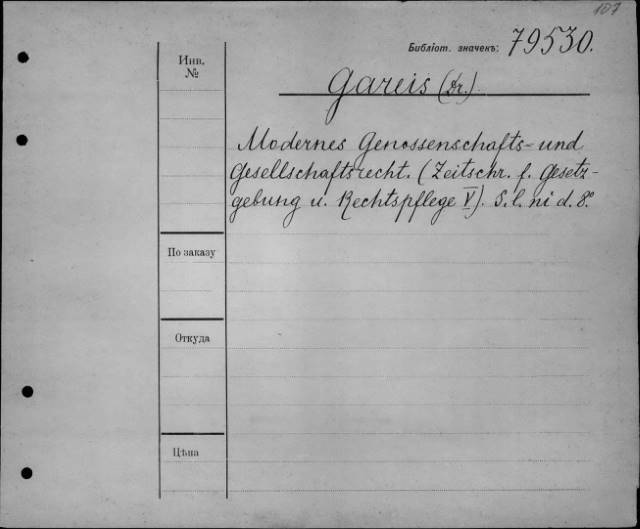 107
Библіот. значекъ: 79530.
Инв.
№
Gareis (Dr.)
Modernes Genossenschafts- und
Gesellschaftsrecht. (Zeitschr. f. Gesetz-
gebung u. Rechtspflege V). S. l. ni d. 8º
По заказу
Откуда
Цѣна